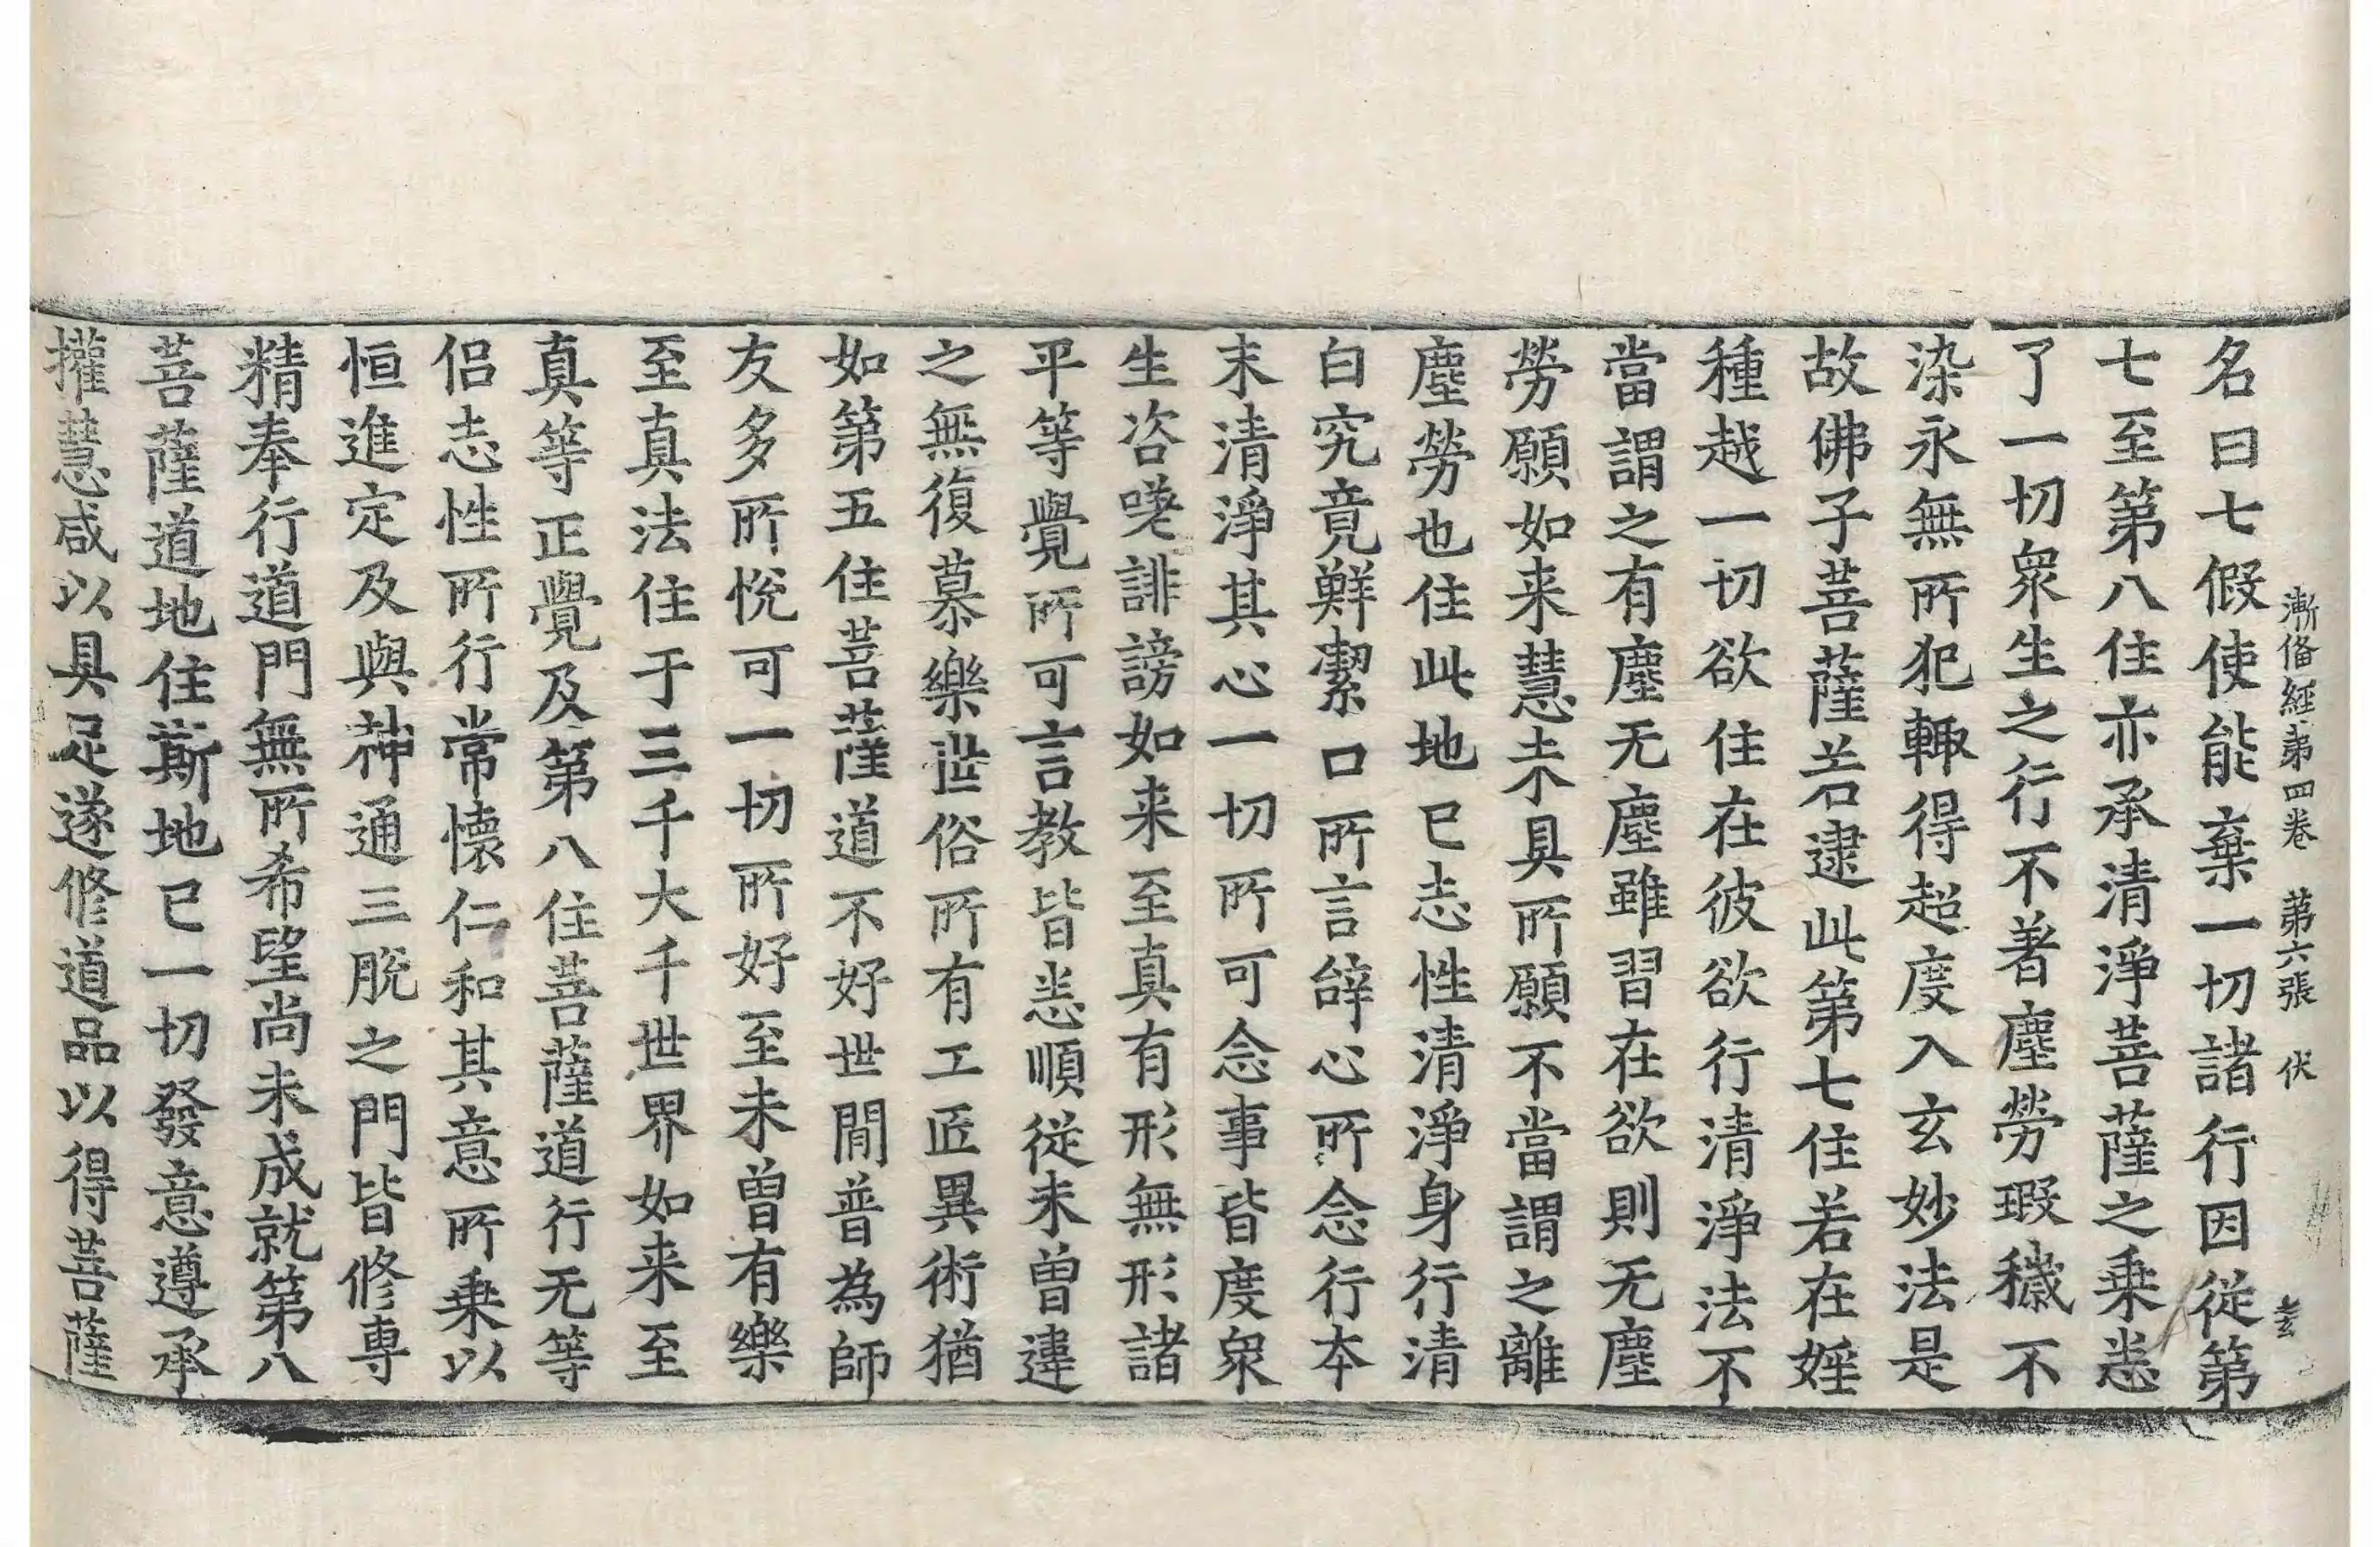 漸俻經第四卷　第六張　伏
名曰七假使能棄一切諸行因從第
七至第八住亦承清淨菩薩之乗悉
了一切衆生之行不著塵勞瑕穢不
染永無所犯輙得超度入玄妙法是
故佛子菩薩若逮此第七住若在婬
種越一切欲住在彼欲行清淨法不
當謂之有塵无塵雖習在欲則无塵
勞願如来慧未具所願不當謂之離
塵勞也住此地已志性清淨身行清
白究竟鮮潔口所言辝心所念行本
末清淨其心一切所可念事皆度衆
生咨嗟誹謗如来至真有形無形諸
平等覺所可言教皆悉順從未曾違
之無復慕樂世俗所有工匠異術猶
如第五住菩薩道不好世閒普為師
友多所悅可一切所好至未曾有樂
至真法住于三千大千世界如来至
真等正覺及第八住菩薩道行无等
侣志性所行常懷仁和其意所乗以
恒進定及與神通三脫之門皆修專
精奉行道門無所希望尚未成就第八
菩薩道地住斯地已一切發意遵承
權慧咸以具足遂修道品以得菩薩